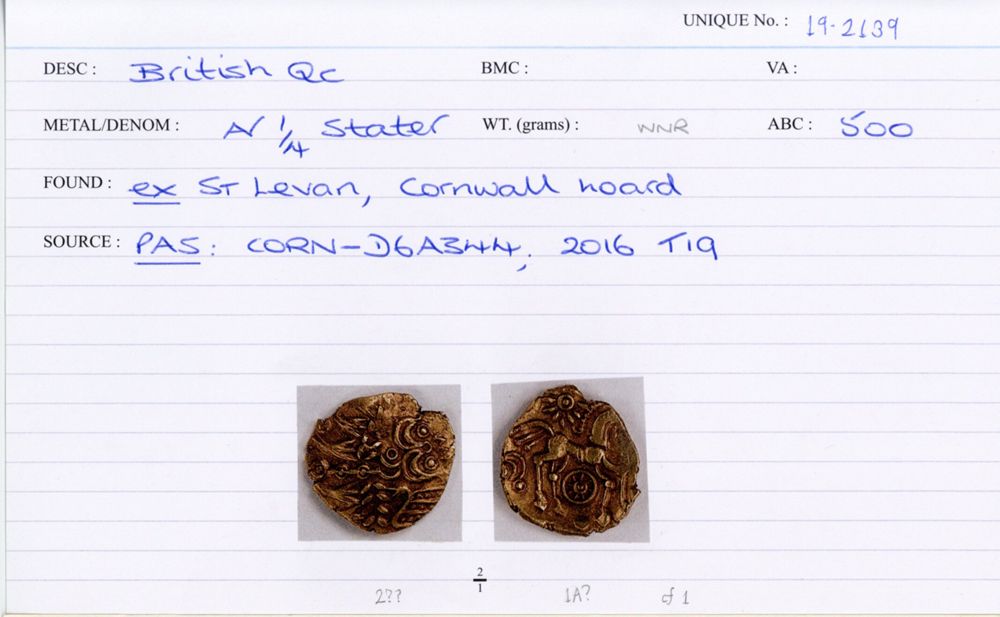 UNIQUE No. : 19-2139
DESC : British Qc BMC : VA :
METAL/DENOM : AV 1/4 Stater WT. (grams) : WNR ABC : 500
FOUND : ex St Levan, Cornwall hoard
SOURCE : PAS: CORN-D6A344; 2016 T19
2/1
2?? 1A? cf 1